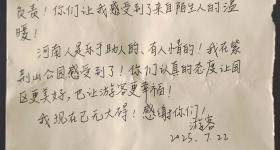 负责！你们让我感受到了来自陌生人的温
暖！
河南人是乐于助人的、有人情的！我在紫
荆山公园感受到了！你们认真的态度让园
区更美好，也让游客更幸福！
我现在已无大碍！感谢你们！
游客
2025.7.22